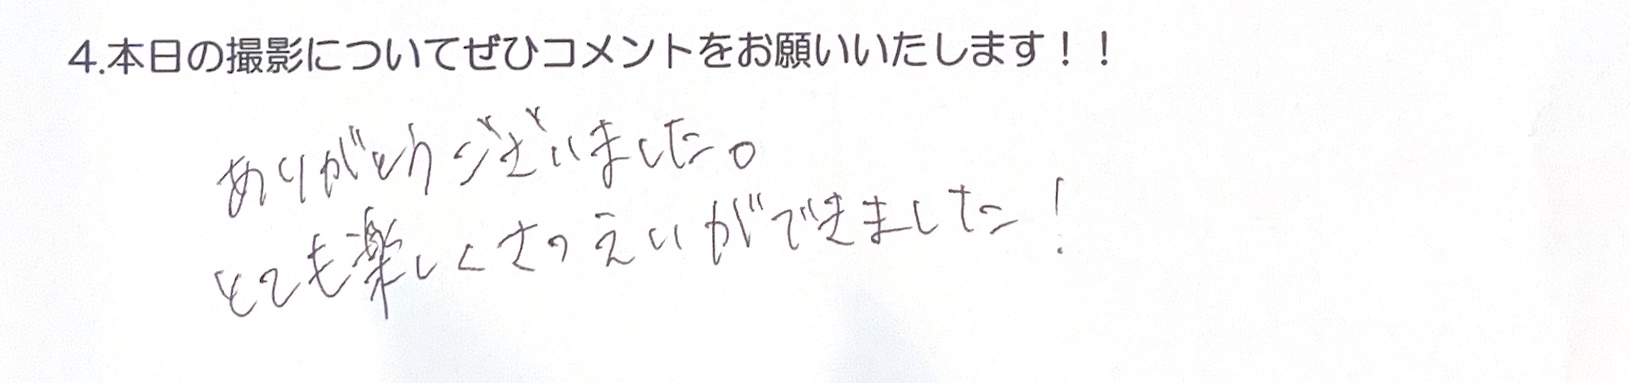 4.本日の撮影についてぜひコメントをお願いいたします！！
ありがとうございました。
とても楽しくさつえいができました！